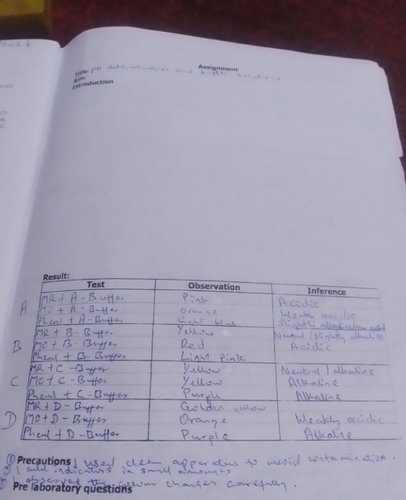 Assignment
Title: PH determination and buffer solutions
Aim:
Introduction
Result:
Test Observation Inference
A
MR + A - Buffer Pink Acidic
MO + A - Buffer Orange Weakly acidic
Phenl + A - Buffer Light blue Slightly
MR + B - Buffer Yellow Neutral / slightly alkaline
B MO + B - Buffer Red Acidic
Phenl + B - Buffer Light Pink
MR + C - Buffer Yellow Neutral / alkaline
C MO + C - Buffer Yellow Alkaline
Phenl + C - Buffer Purple Alkaline
MR + D - Buffer Golden yellow
D MO + D - Buffer Orange Weakly acidic
Phenl + D - Buffer Purple Alkaline
① Precautions I used clean apparatus to avoid contamination.
I add indicators in small amounts
observed the colour changes carefully.
Pre laboratory questions